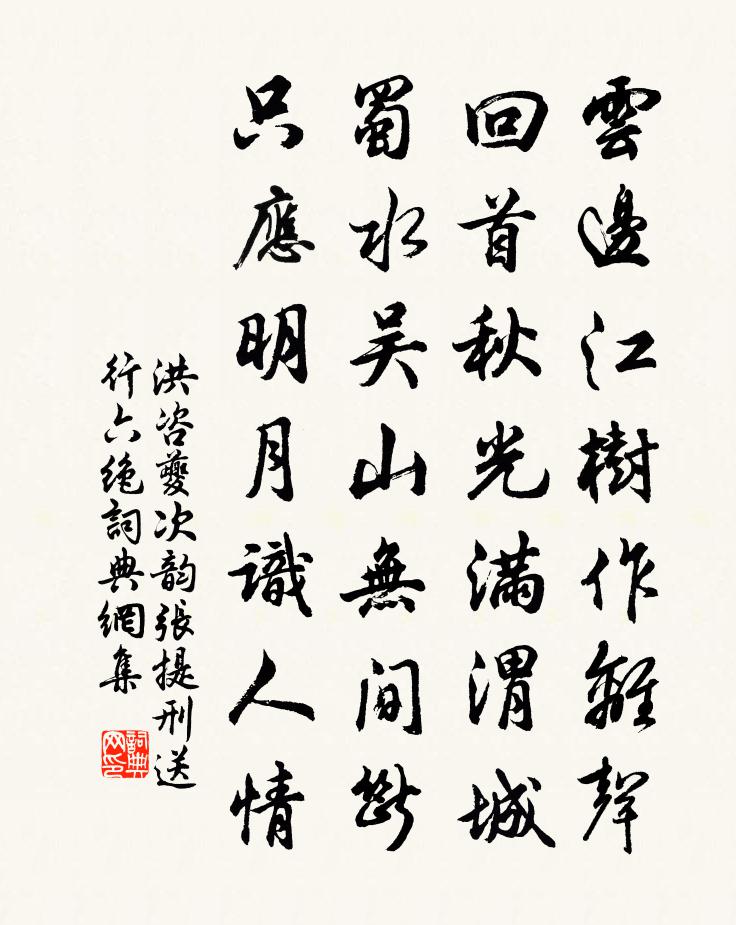 雲邊江樹作離聲
回首秋光滿渭城
蜀水吳山無間斷
只應明月識人情
洪咨夔次韵張提刑送
行六絶詞典網集
詞典網印